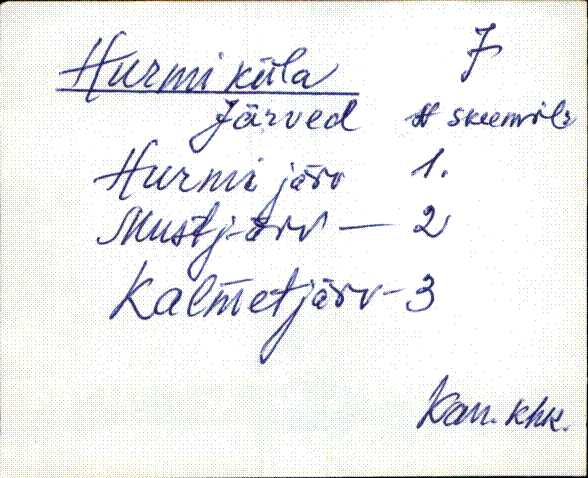 Hurmi küla 7
Järved # skeemile
Hurmi järv 1.
Mustjärv — 2
Kalmetjärv - 3
Kan. khk.